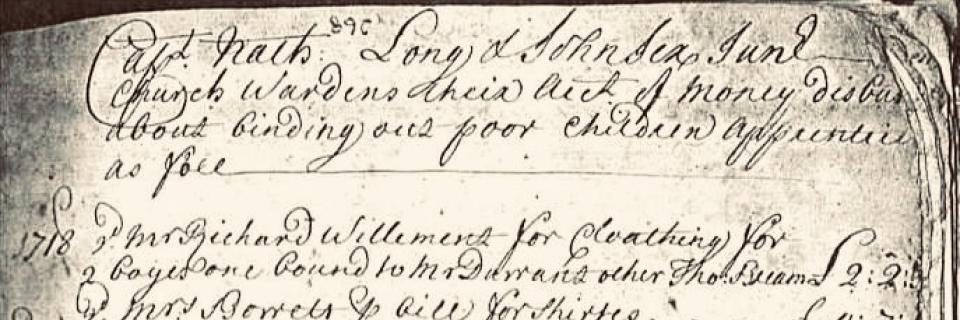 Capt. Nath: Long & John Sex Junr
Church Wardens their Acct of money disbu
about binding out poor Children Apprentic
as foll
1718 pd Mr Richard Willement for Cloathing for
2 boyes one bound to Mr Durrant other Tho: Beam £ 2: 2:
pd Mrs Borrets p bill for Shirtes